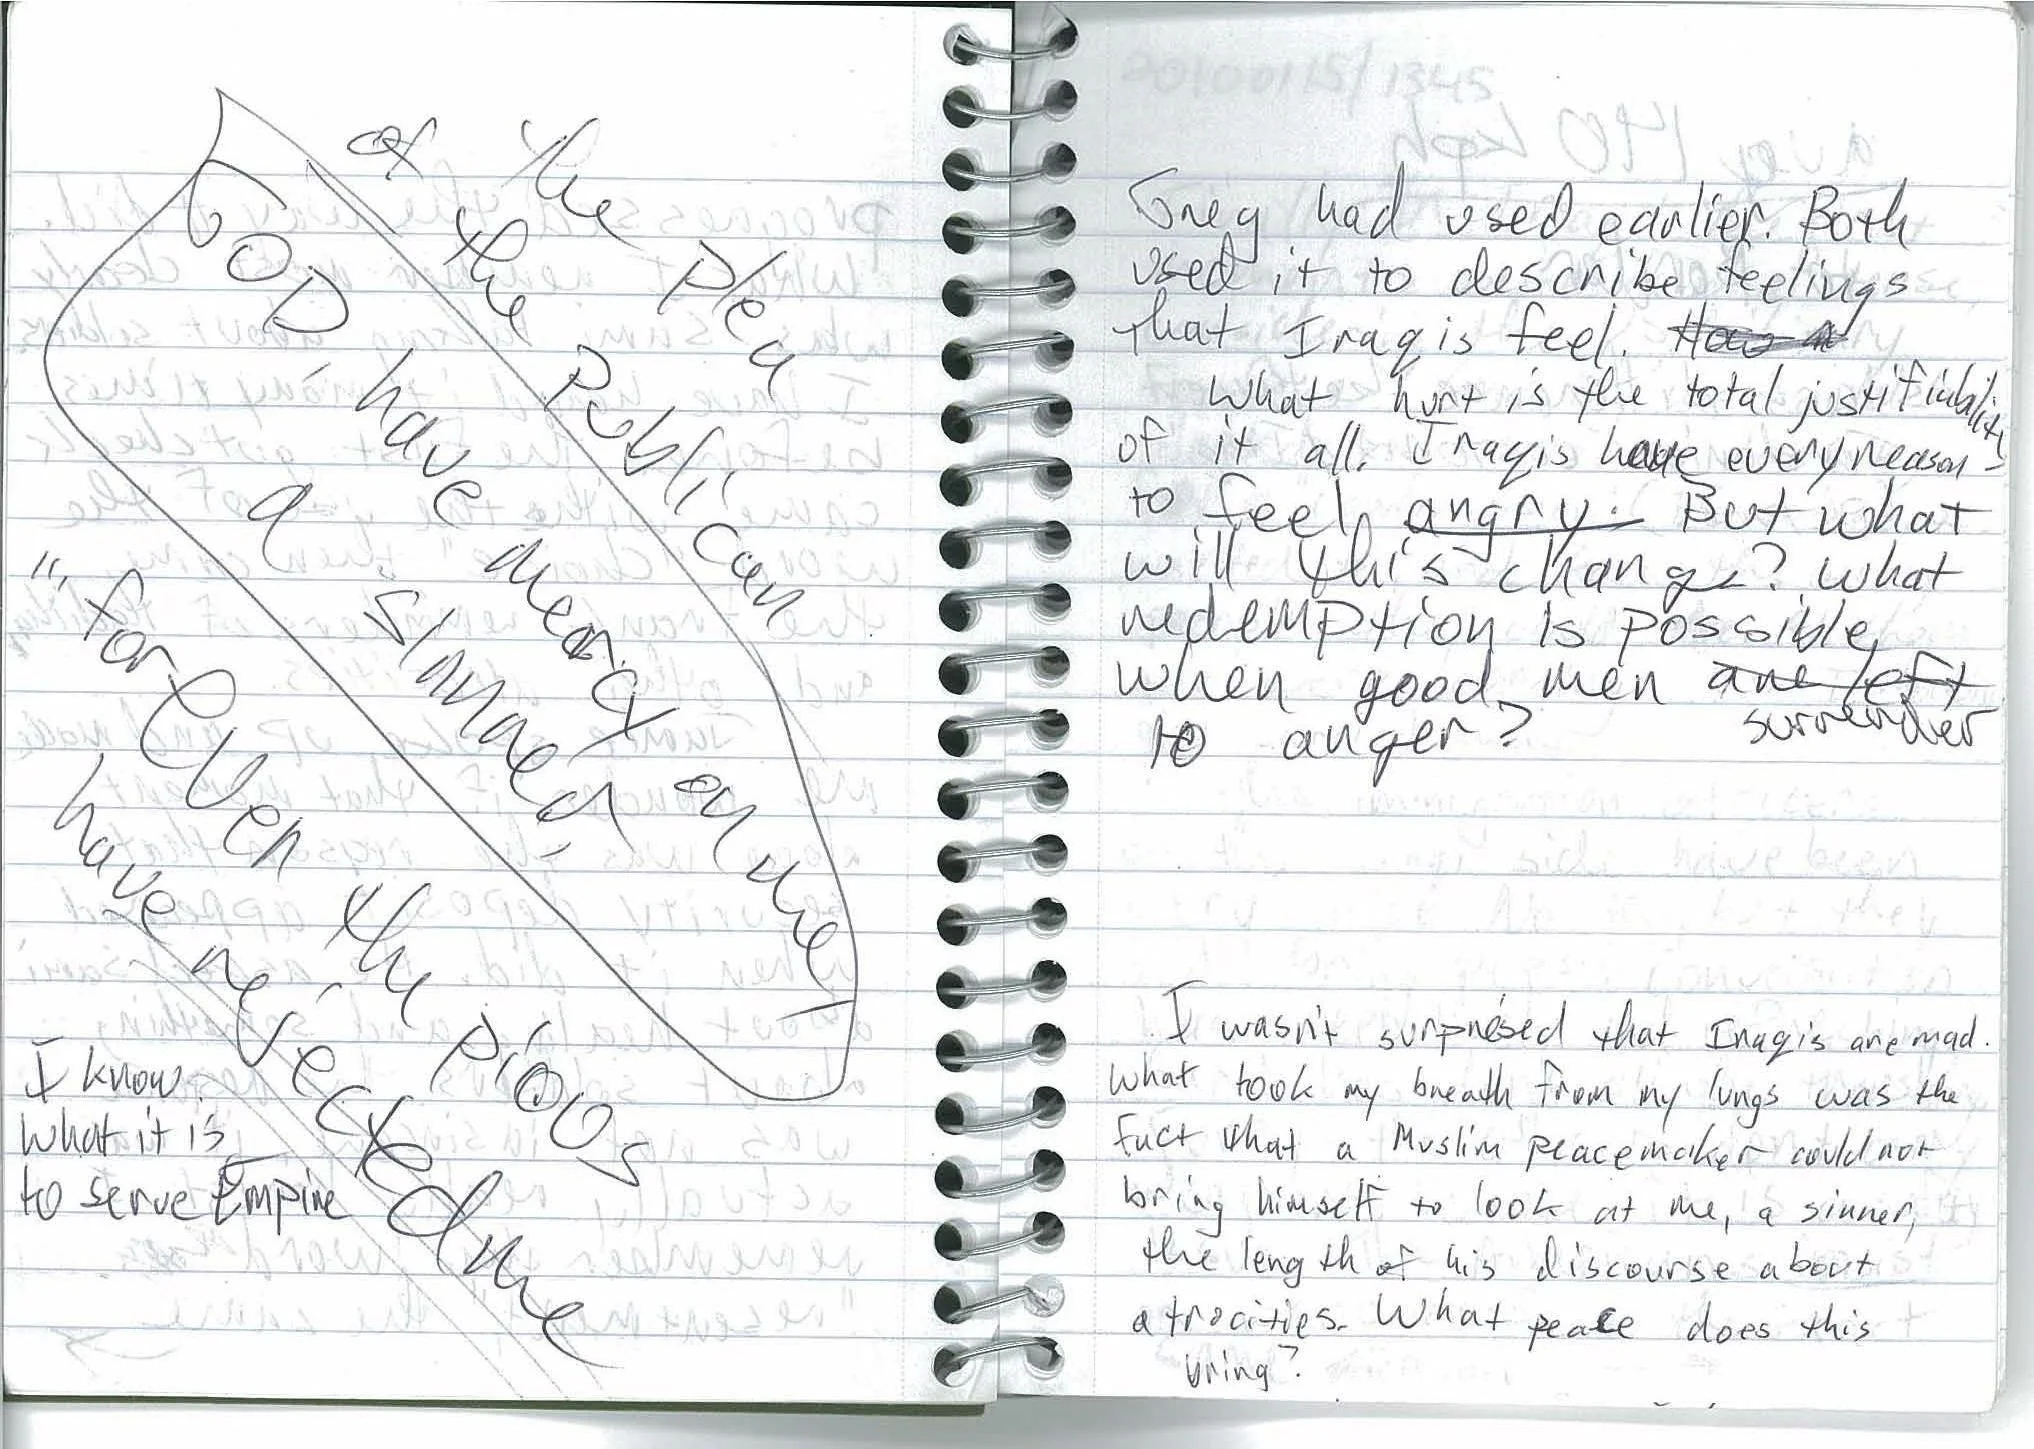 of the plea
the Publican
GOD, have mercy on me
a sinner,
"for even the pious
have rejected me
I know
What it is
to serve Empire
Greg had used earlier. Both
used it to describe feelings
that Iraqis feel.
What hurt is the total justifiability
of it all. Iraqis have every reason
to feel angry. But what
will this change? What
redemption is possible
when good men are left
surrender
to anger?
I wasn't surprised that Iraqis are mad.
What took my breath from my lungs was the
fact that a Muslim peacemaker could not
bring himself to look at me, a sinner,
the length of his discourse about
atrocities. What peace does this
bring?